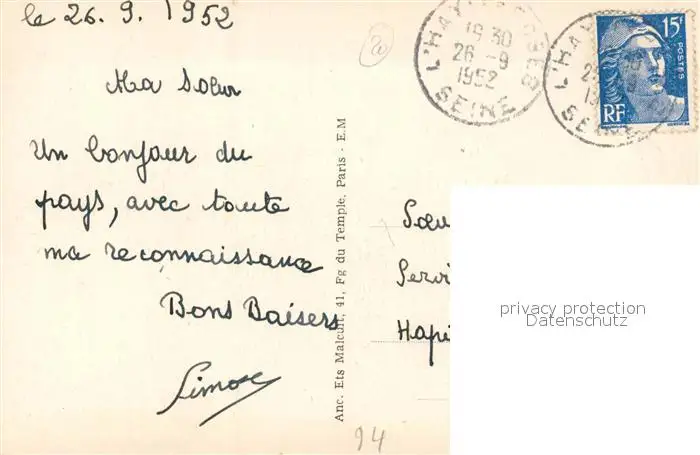 le 26. 9. 1952
Ma Sœur
Un bonjour du
pays, avec toute
ma reconnaissance
Bons Baisers
Simone
Anc. Ets Malcuit, 41, Fg du Temple, Paris - E.M
19 30
26 - 9
1952
L'HAY
SEINE
15F
POSTES
RF
L'HAY
SEINE
Sœu
Servi
Hopi
privacy protection
Datenschutz
94